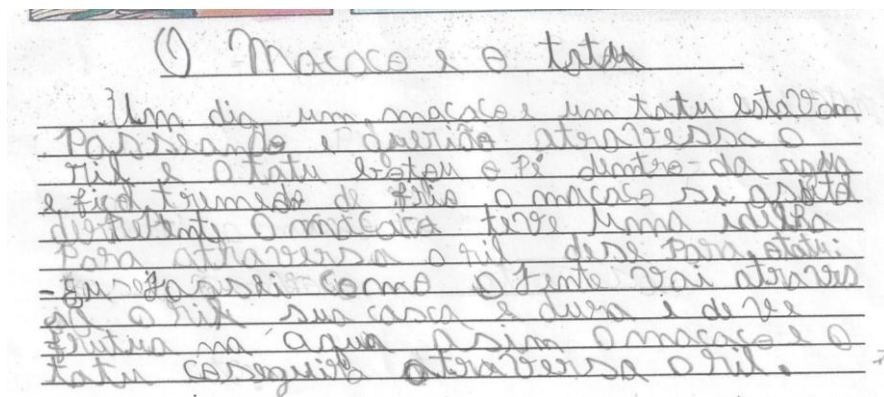 O Macaco e o tatu
Um dia um macaco e um tatu estavam
Passeando e queriao atarvesa o
riu e Otatu botou o pé dentro da agua
e ficou tremendo de friu o macaco
Omacaco teve uma ideia
Para atarvesa o riu dese Para otatu
- eu ja sei como agente vai atarvesa
a o riu sua casca é dura i deve
flutua na agua asim Omacaco e o
tatu coseguiro atarvesa oriu.